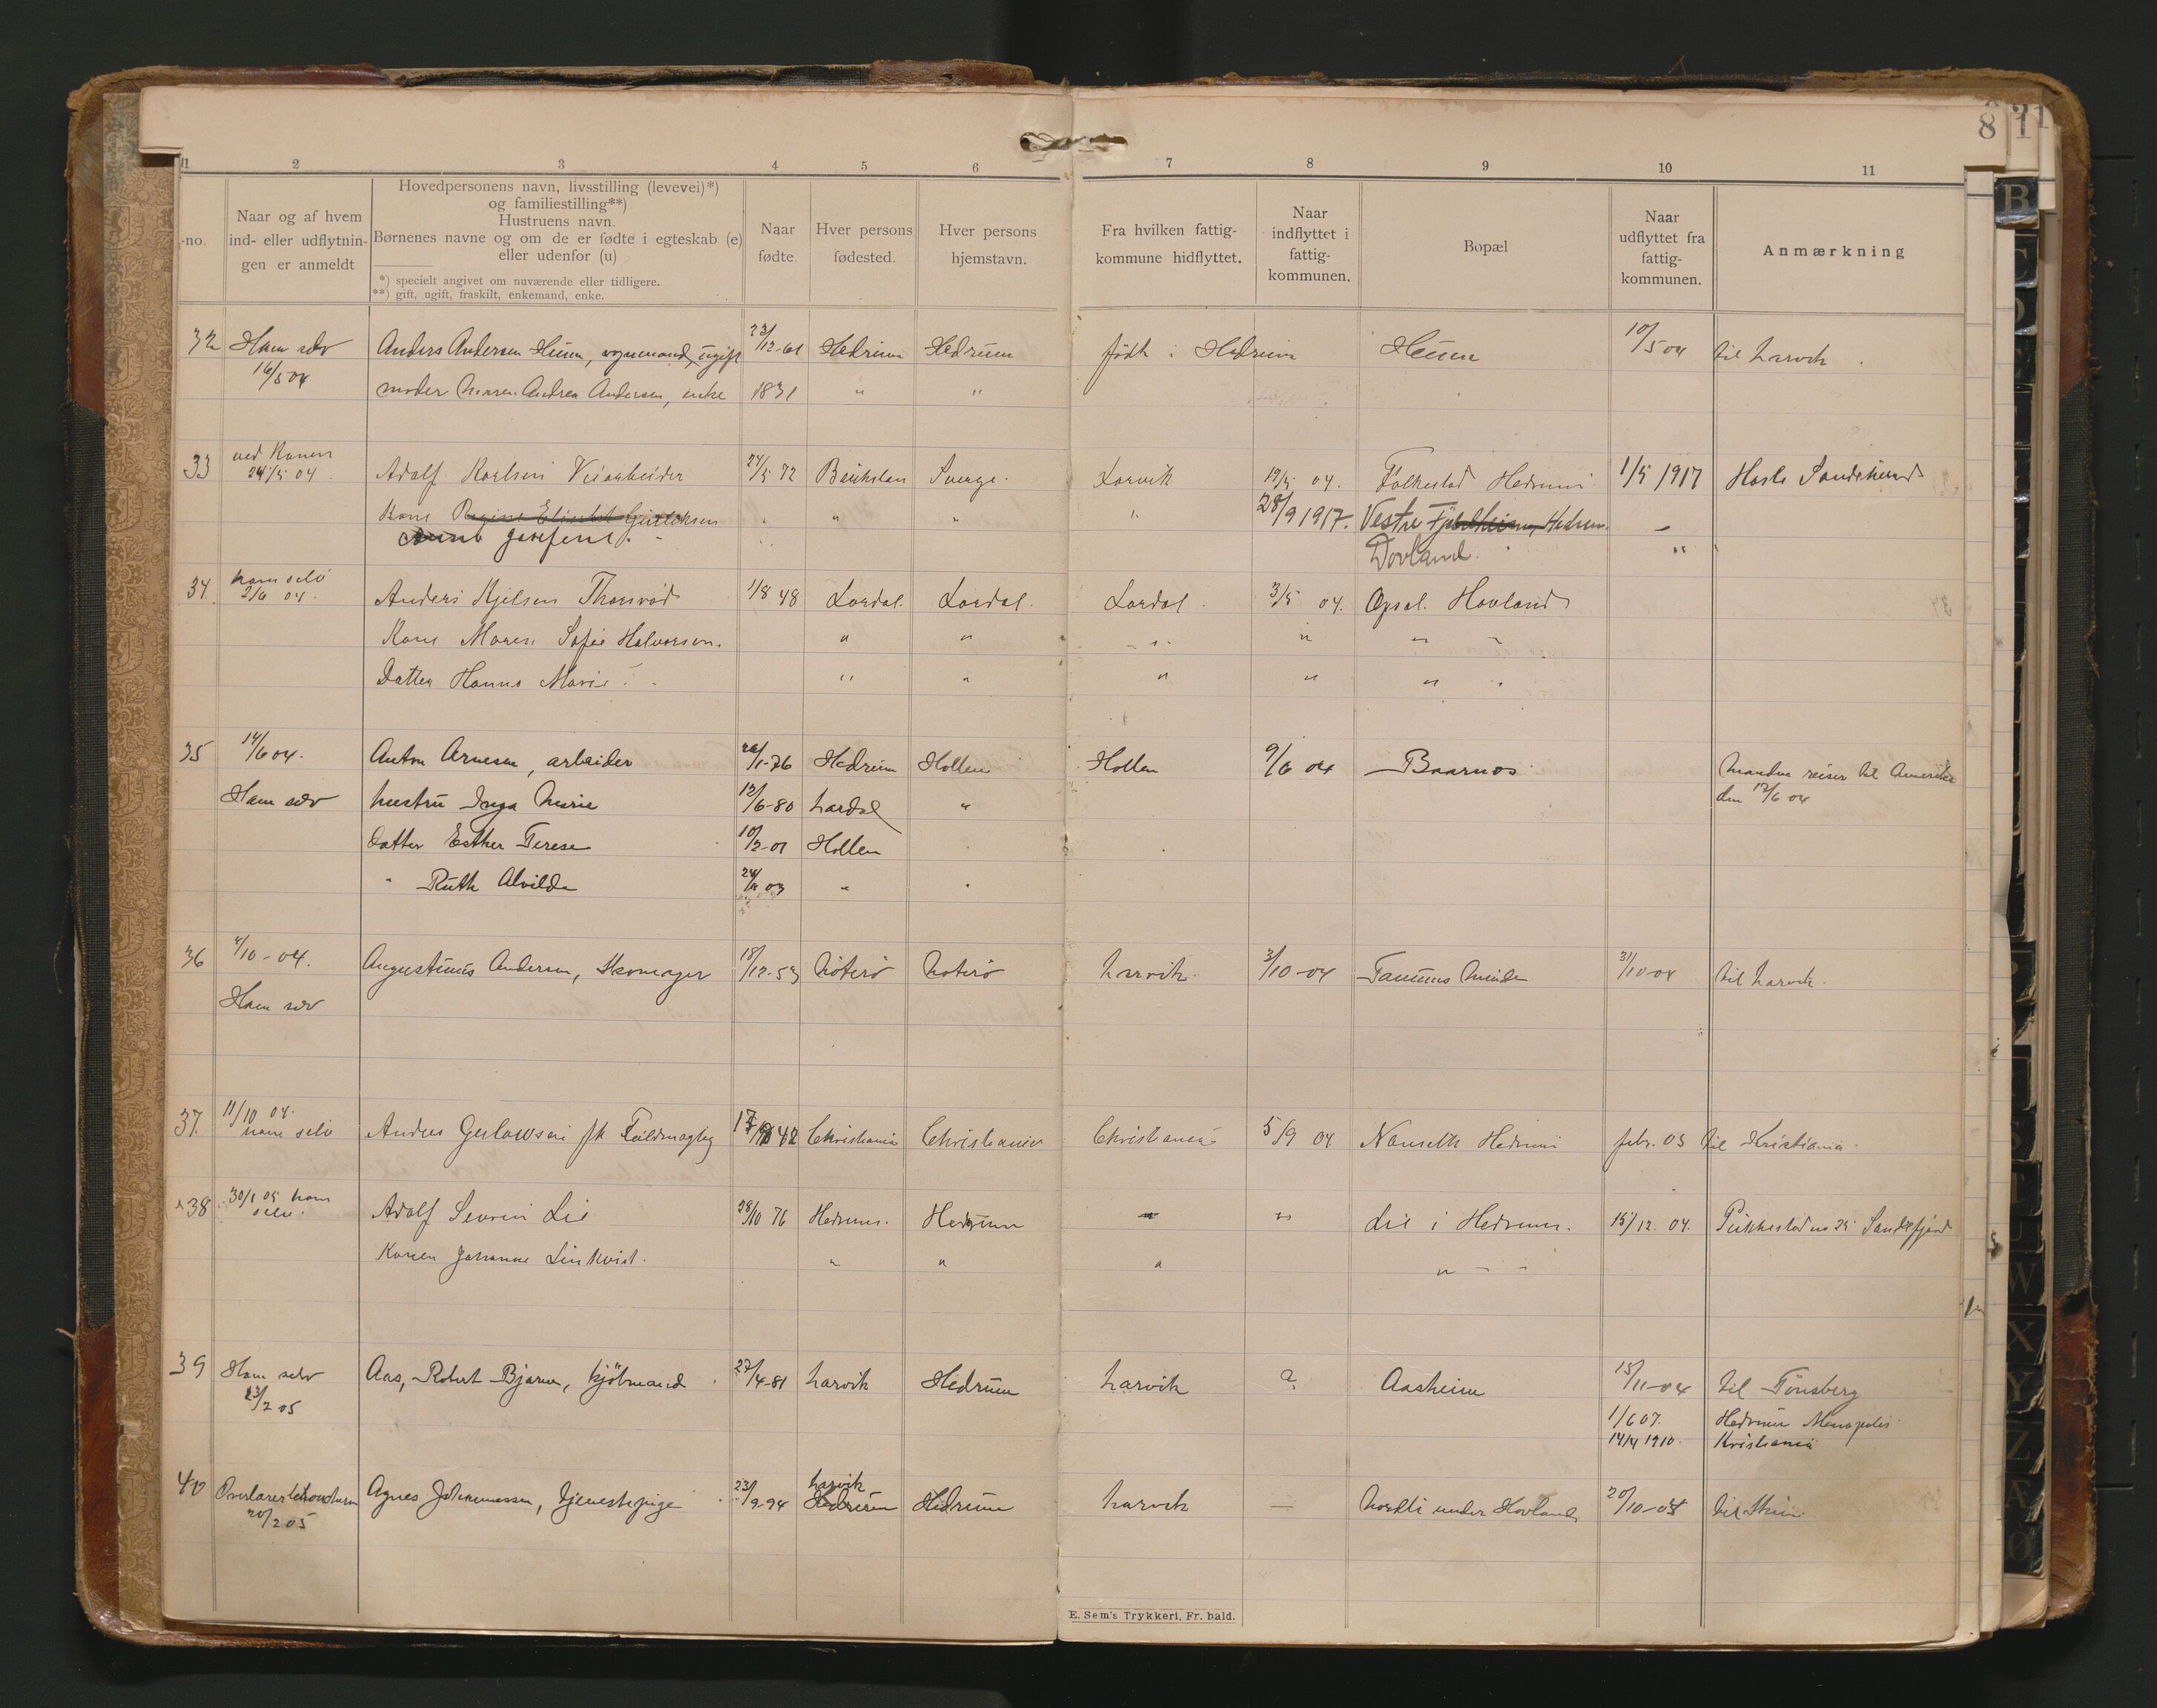 8 1
1 2 3 4 5 6 7 8 9 10 11
-no.
Naar og af hvem
ind- eller udflytnin-
gen er anmeldt
Hovedpersonens navn, livsstilling (levevei)*)
og familiestilling**)
Hustruens navn.
Børnenes navne og om de er fødte i egteskab (e)
eller udenfor (u)
*) specielt angivet om nuværende eller tidligere.
**) gift, ugift, fraskilt, enkemand, enke.
Naar
fødte.
Hver persons
fødested.
Hver persons
hjemstavn.
Fra hvilken fattig-
kommune hidflyttet.
Naar
indflyttet i
fattig-
kommunen.
Bopæl
Naar
udflyttet fra
fattig-
kommunen.
Anmærkning
32 Ham selv Anders Andersen Heum, vognmand, ugift 23/12-61 Hedrum Hedrum født i Hedrum Heum 10/5 04 til Larvik
16/5 04 moder Maren Andrea Andersen, enke 1831 " "
33 ved Konen
24/5 04 Adolf Karlsen Veiarbeider 24/5 72 Sverge. Larvik 19/5 04. Falkestad Hedrum 1/5 1917 Hasle Sandeherred
Kone " " " 28/9 1917. Vestre Hedrum. -
Josefine. - Dovland. "
34. ham selv
2/6 04. Anders Kjelsen Thorsrød 1/8 48 Lardal. Lardal. Lardal. 3/5 04. Opsal. Hovland
Kone Maren Sofie Halvorsen. " " " " "
Datter Hanna Marie " " " " "
35 14/6 04. Anton Arnesen, arbeider 26/1-76 Hedrum Hollen Hollen 9/6 04 Baarnos Manden reiser til Amerika
den 12/6 04
Ham selv hustru Inga Marie 12/6-80 Lardal "
Datter Esther Terese 10/2-01 Hollen
" Ruth Alvilde 03 "
36 4/10-04. Augustinus Andersen, Skomager 18/12-53 Nøterø Nøterø Larvik. 3/10-04 Minde 31/10-04 til Larvik.
Ham selv
37. 11/10 04.
ham selv Anders Gulowsen fh Fuldmægtig Christiania Christiania Christiania 5/9 04 Nanseth Hedrum febr. 05 til Kristiania.
38 30/1 05 ham
selv. Adolf Severin Lie 28/10 76 Hedrum. Hedrum " " Lie i Hedrum. 15/12. 04. Pukkestad no 25 Sandefjord
Konen Johanne Linkvist. " " " "
39 Ham selv Aas, Robert Bjarne, kjøbmand 27/4-81 Larvik Hedrum Larvik ? Aasheim 15/11-04 til Tønsberg
23/2 05 1/6 07. Hedrum
14/4 1910. Kristiania
40 Agnes Johannessen, tjenestepige 23/9-94 Larvik
Hedrum Hedrum Larvik — under Hovland 20/10-04 til Skien
20/2 05
E. Sem's Trykkeri, Fr. hald.
B C D X Y Z Æ Ø